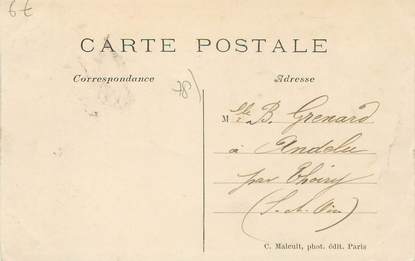 6€
CARTE POSTALE
Correspondance
Adresse
78/
Mlle B. Grenard
à Andelu
par Thoiry
(S.-et-Oise)
C. Malcuit, phot. édit. Paris